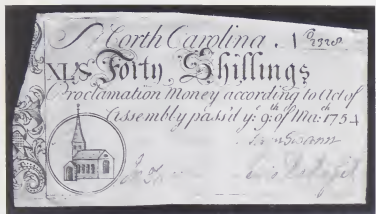 North Carolina . N
XLS Forty Shillings
Proclamation Money according to Act of
Assembly pass'd yͤ 9th of Mar:ch 1754
Swann